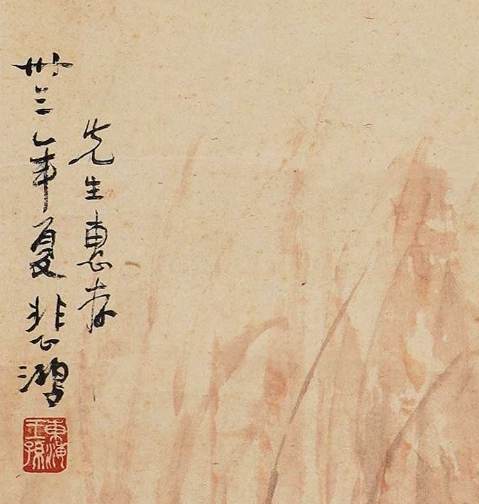 先生惠存
卅三年夏悲鸿
東海王孫